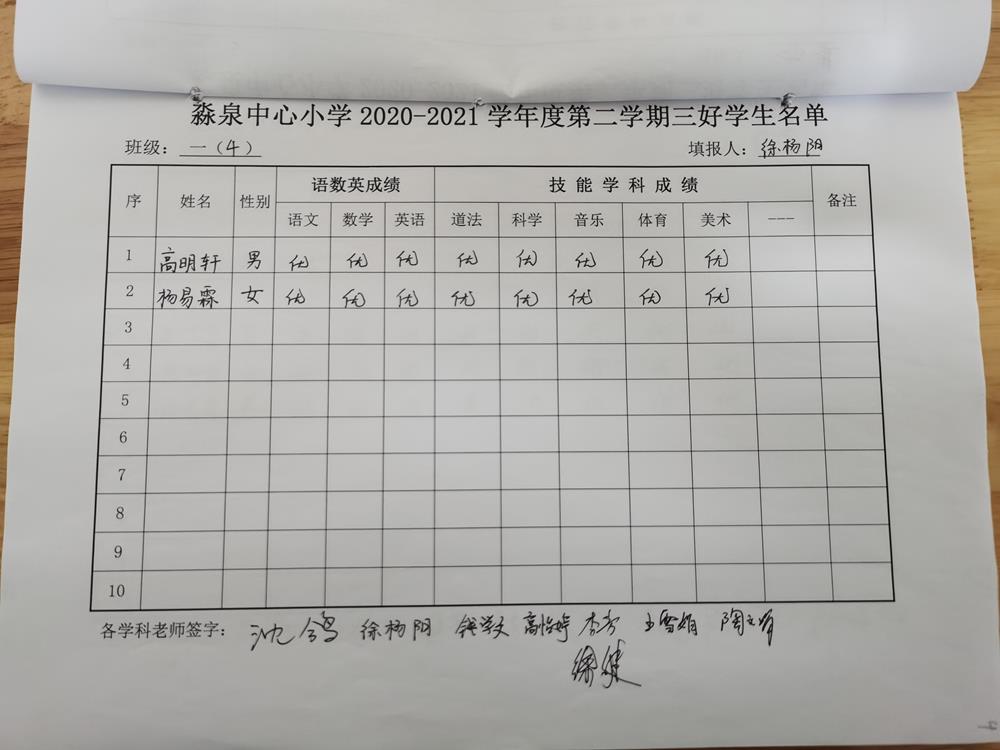 淼泉中心小学 2020-2021 学年度第二学期三好学生名单
班级： 一（4） 填报人：徐杨阳
序 姓名 性别 语数英成绩 技能学科成绩 备注
语文 数学 英语 道法 科学 音乐 体育 美术 ---
1 高明轩 男 优 优 优 优 优 优 优 优
2 杨易霖 女 优 优 优 优 优 优 优 优
3
4
5
6
7
8
9
10
各学科老师签字： 沈 徐杨阳 高怡婷 李芳 王雪娟
徐健